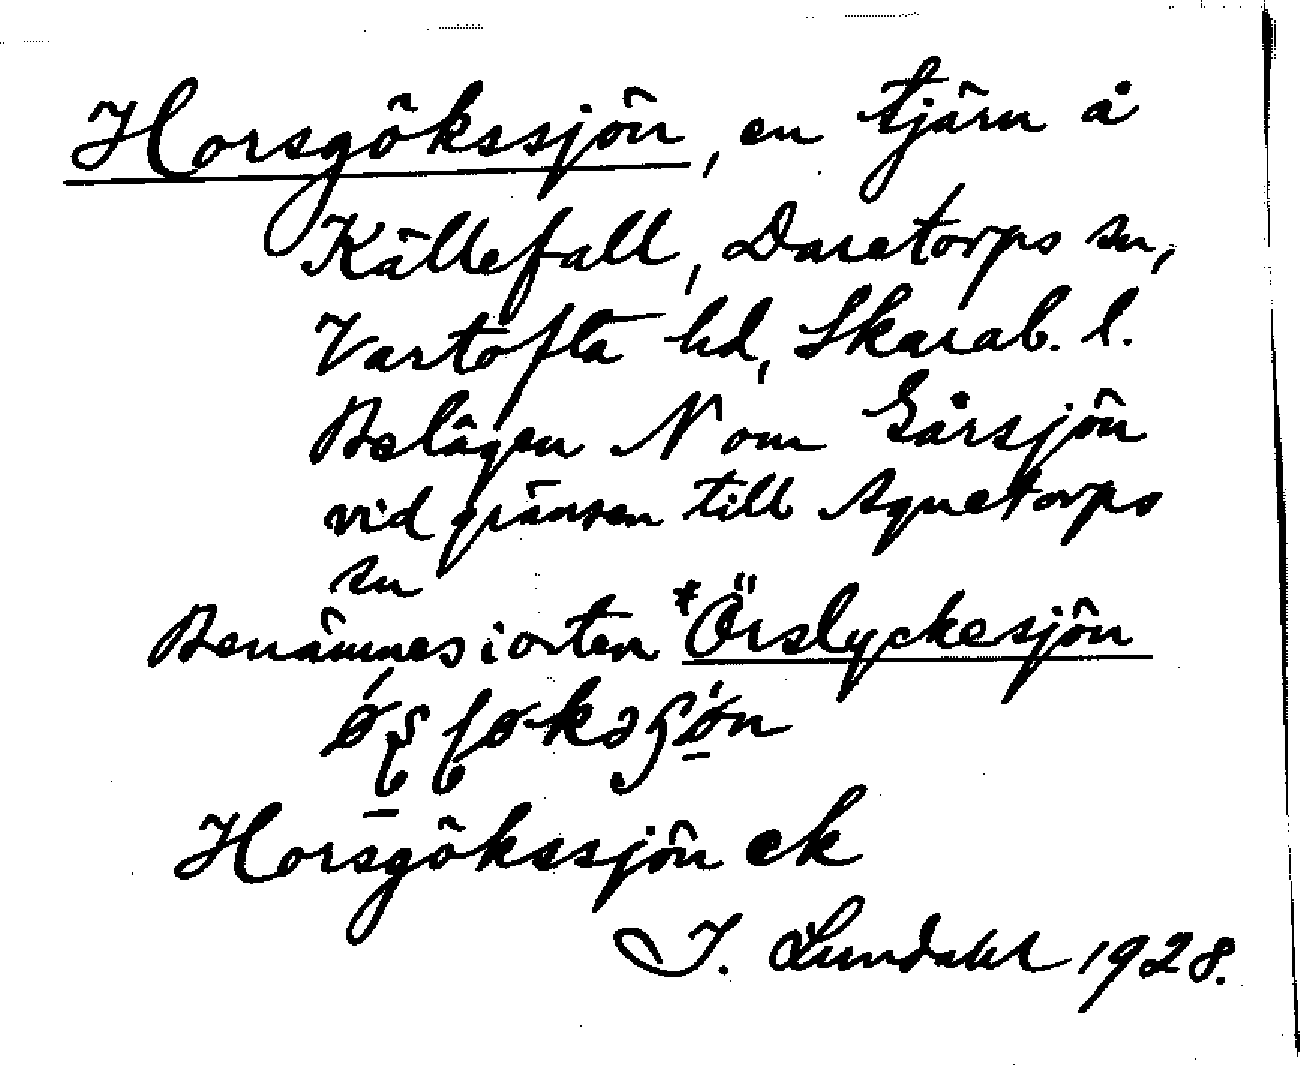 Horsgökssjön, en tjärn å
Källefall, Daretorps sn,
Vartofta hd, Skarab. l.
Belägen N om Gårsjön
vid gränsen till Agnetorps
sn
Benämnes i orten *Örslyckesjön
Horsgökssjön ek
J. Lundahl 1928.